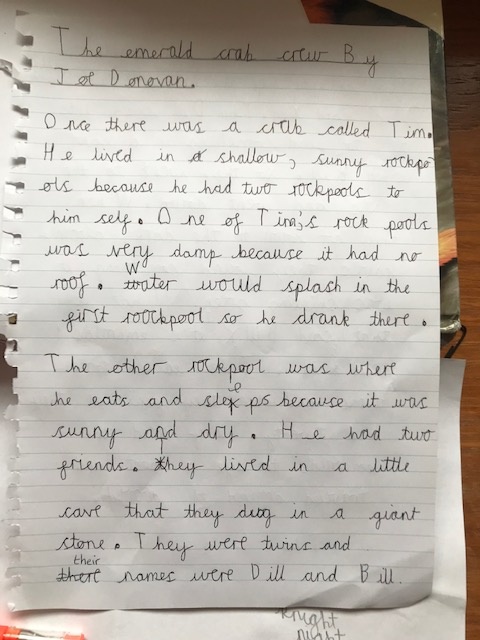 The emerald crab crew By
Joe Donovan.
Once there was a crab called Tim.
He lived in a shallow, sunny rockpo
ols because he had two rockpools to
him self. One of Tim's rock pools
was very damp because it had no
roof. Water would splash in the
first roockpool so he drank there.
The other rockpool was where
he eats and sleeps because it was
sunny and dry. He had two
friends. They lived in a little
cave that they dug in a giant
stone. They were twins and
their
there names were Dill and Bill.
knight
night